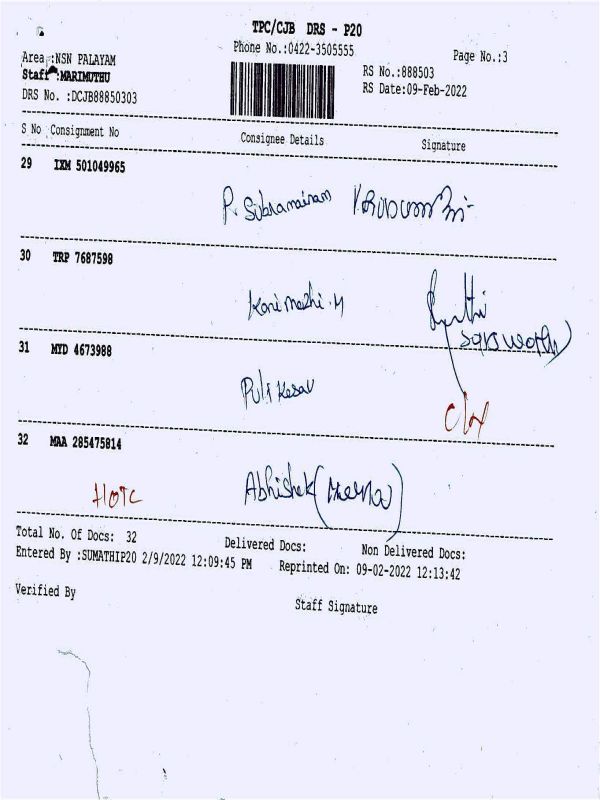 TPC/CJB DRS - P20
Phone No.:0422-3505555
Page No.:3
Area :NSN PALAYAM
Staff :MARIMUTHU
RS No.:888503
DRS No. :DCJB88850303
RS Date:09-Feb-2022
S No Consignment No Consignee Details Signature
29 IXM 501049965
P. Subramainam
30 TRP 7687598
Kanimozhi.M
31 MYD 4673988
Pulikesav
32 MAA 285475814
HOTC
Abhishek
Total No. Of Docs: 32 Delivered Docs: Non Delivered Docs:
Entered By :SUMATHIP20 2/9/2022 12:09:45 PM Reprinted On: 09-02-2022 12:13:42
Verified By Staff Signature